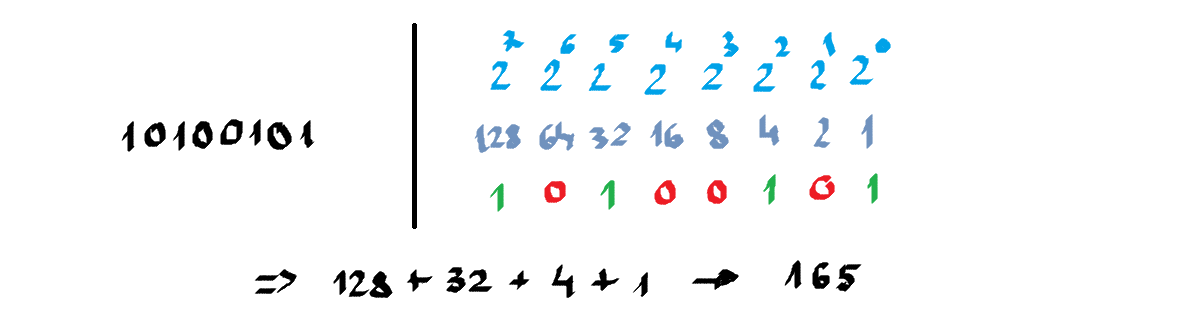 10100101
2⁷ 2⁶ 2⁵ 2⁴ 2³ 2² 2¹ 2⁰
128 64 32 16 8 4 2 1
1 0 1 0 0 1 0 1
=> 128 + 32 + 4 + 1 → 165